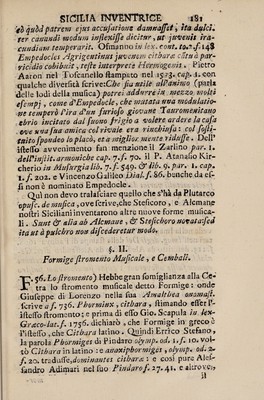 SICILIA INVENTRICE 181
ed quòd patrem ejus accusatione damnasset, ita dulci-
ter canendi modum inflexisse dicitur, ut juvenis ira-
cundiam temperarit. Ofmanno in lex. cont. to.2. f. 148
Empedocles Agrigentinus juvenem cithara cantu à par-
ricidio cohibuit, teste interprete Hermogenis. Pietro
Aaron nel Toscanello stampato nel 1523. cap. 1. con
qualche diversità scrive: Che sia utile all'animo (parla
delle lodi della musica) potrei addurre in mezzo molti
esempj, come d'Empedocle, che mutata una modulatio-
ne temperò l'ira d'un furioso giovane Tauromenitano
ebrio incitato dal suono frigio a volere ardere la casa
ove una sua amica col rivale era rinchiusa: col sosti-
tuito spondeo lo placò, et a miglior mente ridusse. Dell'
istesso avvenimento fan menzione il Zarlino par. 1.
dell'instit. armoniche cap. 7. f. 70. il P. Atanasio Kir-
cherio in Musurgia lib. 7. f. 549. & lib. 9. par. 1. cap.
1. f. 202. e Vincenzo Galileo Dial. f. 86. bunche da es-
si non è nominato Empedocle.
Quì non devo tralasciare quello che s'hà da Plutarco
opusc. de musica, ove scrive, che Stesicoro, e Alcmane
nostri Siciliani inventarono altre nuove forme musica-
li. Sunt & alia ab Alcmane, & Stesichoro novata sed
ita ut à pulchro non discederetur modo.
§. II.
Formige stromento Musicale, e Cembali.
F.56. Lo stromento) Hebbe gran somiglianza alla Ce-
tra lo stromento musicale detto Formige: onde
Giuseppe di Lorenzo nella sua Amalthea onomast.
scrive a f. 736. Phorminx, cithara, stimando esser l'
istesso stromento: e prima di esso Gio. Scapula in lex-
Græco-lat. f. 1756. dichiarò, che Formige in greco è
l'istesso, che Cithara latino. Quindi Errico Stefano,
la parola Phormiges di Pindaro olymp. od. 1. f. 10. vol-
tò Citharæ in latino: e anaxiphormiges, olymp. od. 2-
f. 20. tradusse, dominantes citharæ: e così pure Ales-
sandro Adimari nel suo Pindaro f. 27. 41. e altrove,
il